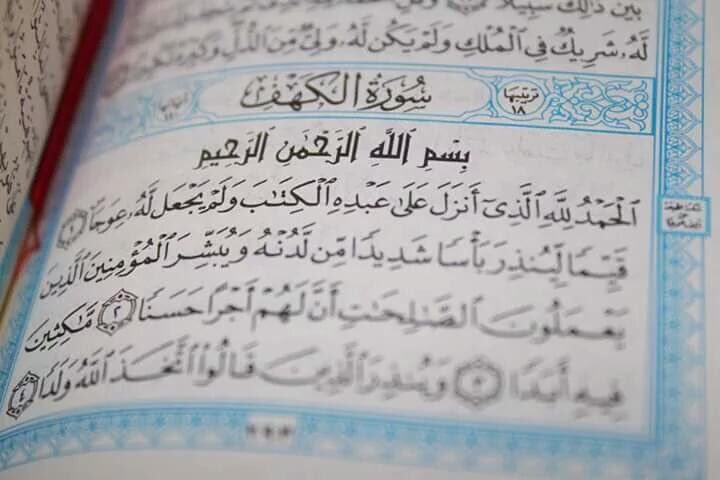 لَّهُۥ شَرِيكٌ فِي ٱلْمُلْكِ وَلَمْ يَكُن لَّهُۥ وَلِيٌّ مِّنَ ٱلذُّلِّ وَكَبِّرْهُ تَكْبِيرًا
سُورَةُ الكَهْفِ
ترتيبها ١٨
آياتها ١١٠
بِسْمِ ٱللَّهِ ٱلرَّحْمَٰنِ ٱلرَّحِيمِ
ٱلْحَمْدُ لِلَّهِ ٱلَّذِىٓ أَنزَلَ عَلَىٰ عَبْدِهِ ٱلْكِتَٰبَ وَلَمْ يَجْعَل لَّهُۥ عِوَجَا ١
قَيِّمًا لِّيُنذِرَ بَأْسًا شَدِيدًا مِّن لَّدُنْهُ وَيُبَشِّرَ ٱلْمُؤْمِنِينَ ٱلَّذِينَ
يَعْمَلُونَ ٱلصَّٰلِحَٰتِ أَنَّ لَهُمْ أَجْرًا حَسَنًا ٢ مَّٰكِثِينَ
فِيهِ أَبَدًا ٣ وَيُنذِرَ ٱلَّذِينَ قَالُوا۟ ٱتَّخَذَ ٱللَّهُ وَلَدًا ٤
٢٩٣